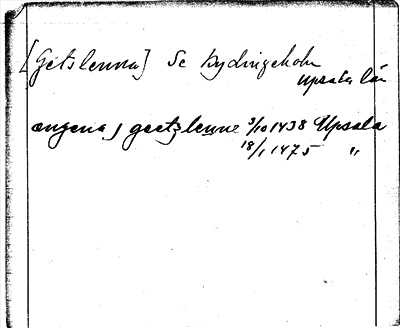 [Getslenna] Se Rydingeholm
Upsala län
ængena j geetzlenne 3/10 1438 Upsala
18/1 1475 "